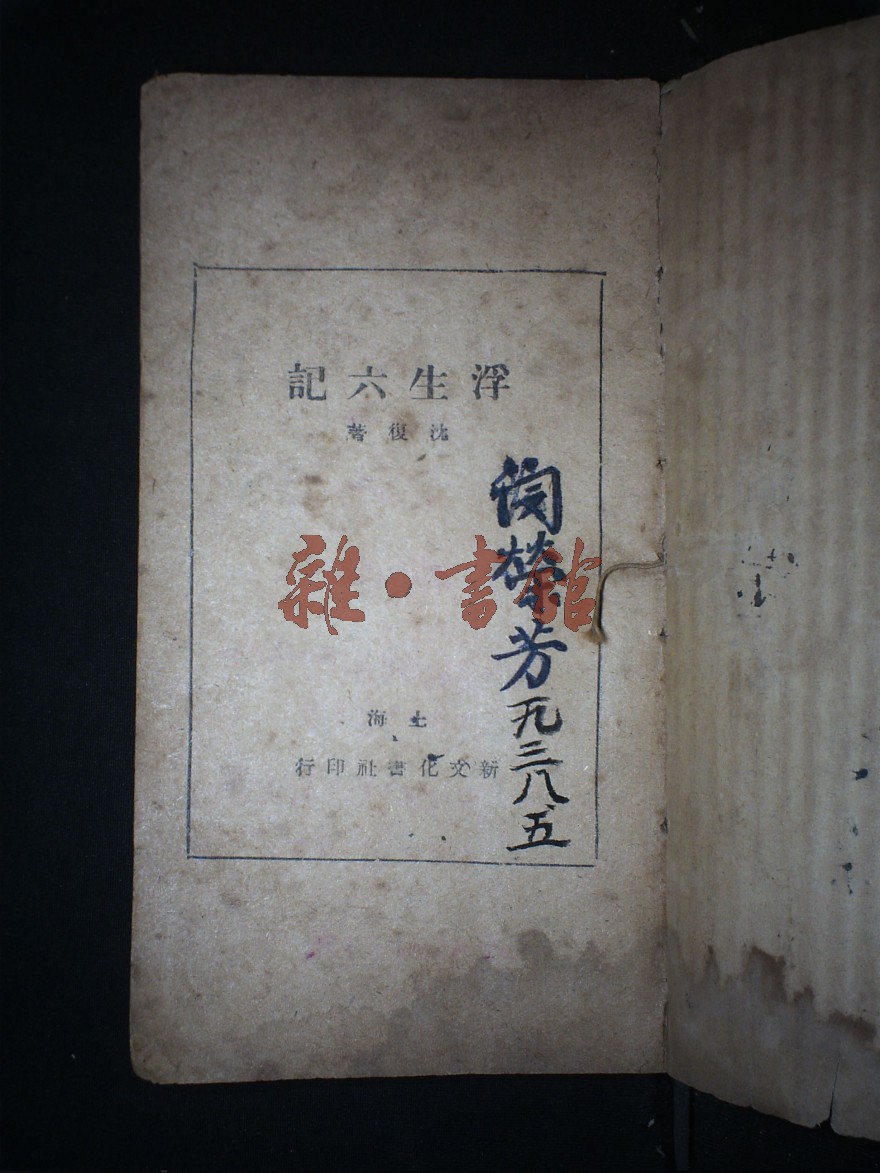 浮生六記
沈復著
榮芳一九三八、五
雜·書館
上海
新文化書社印行